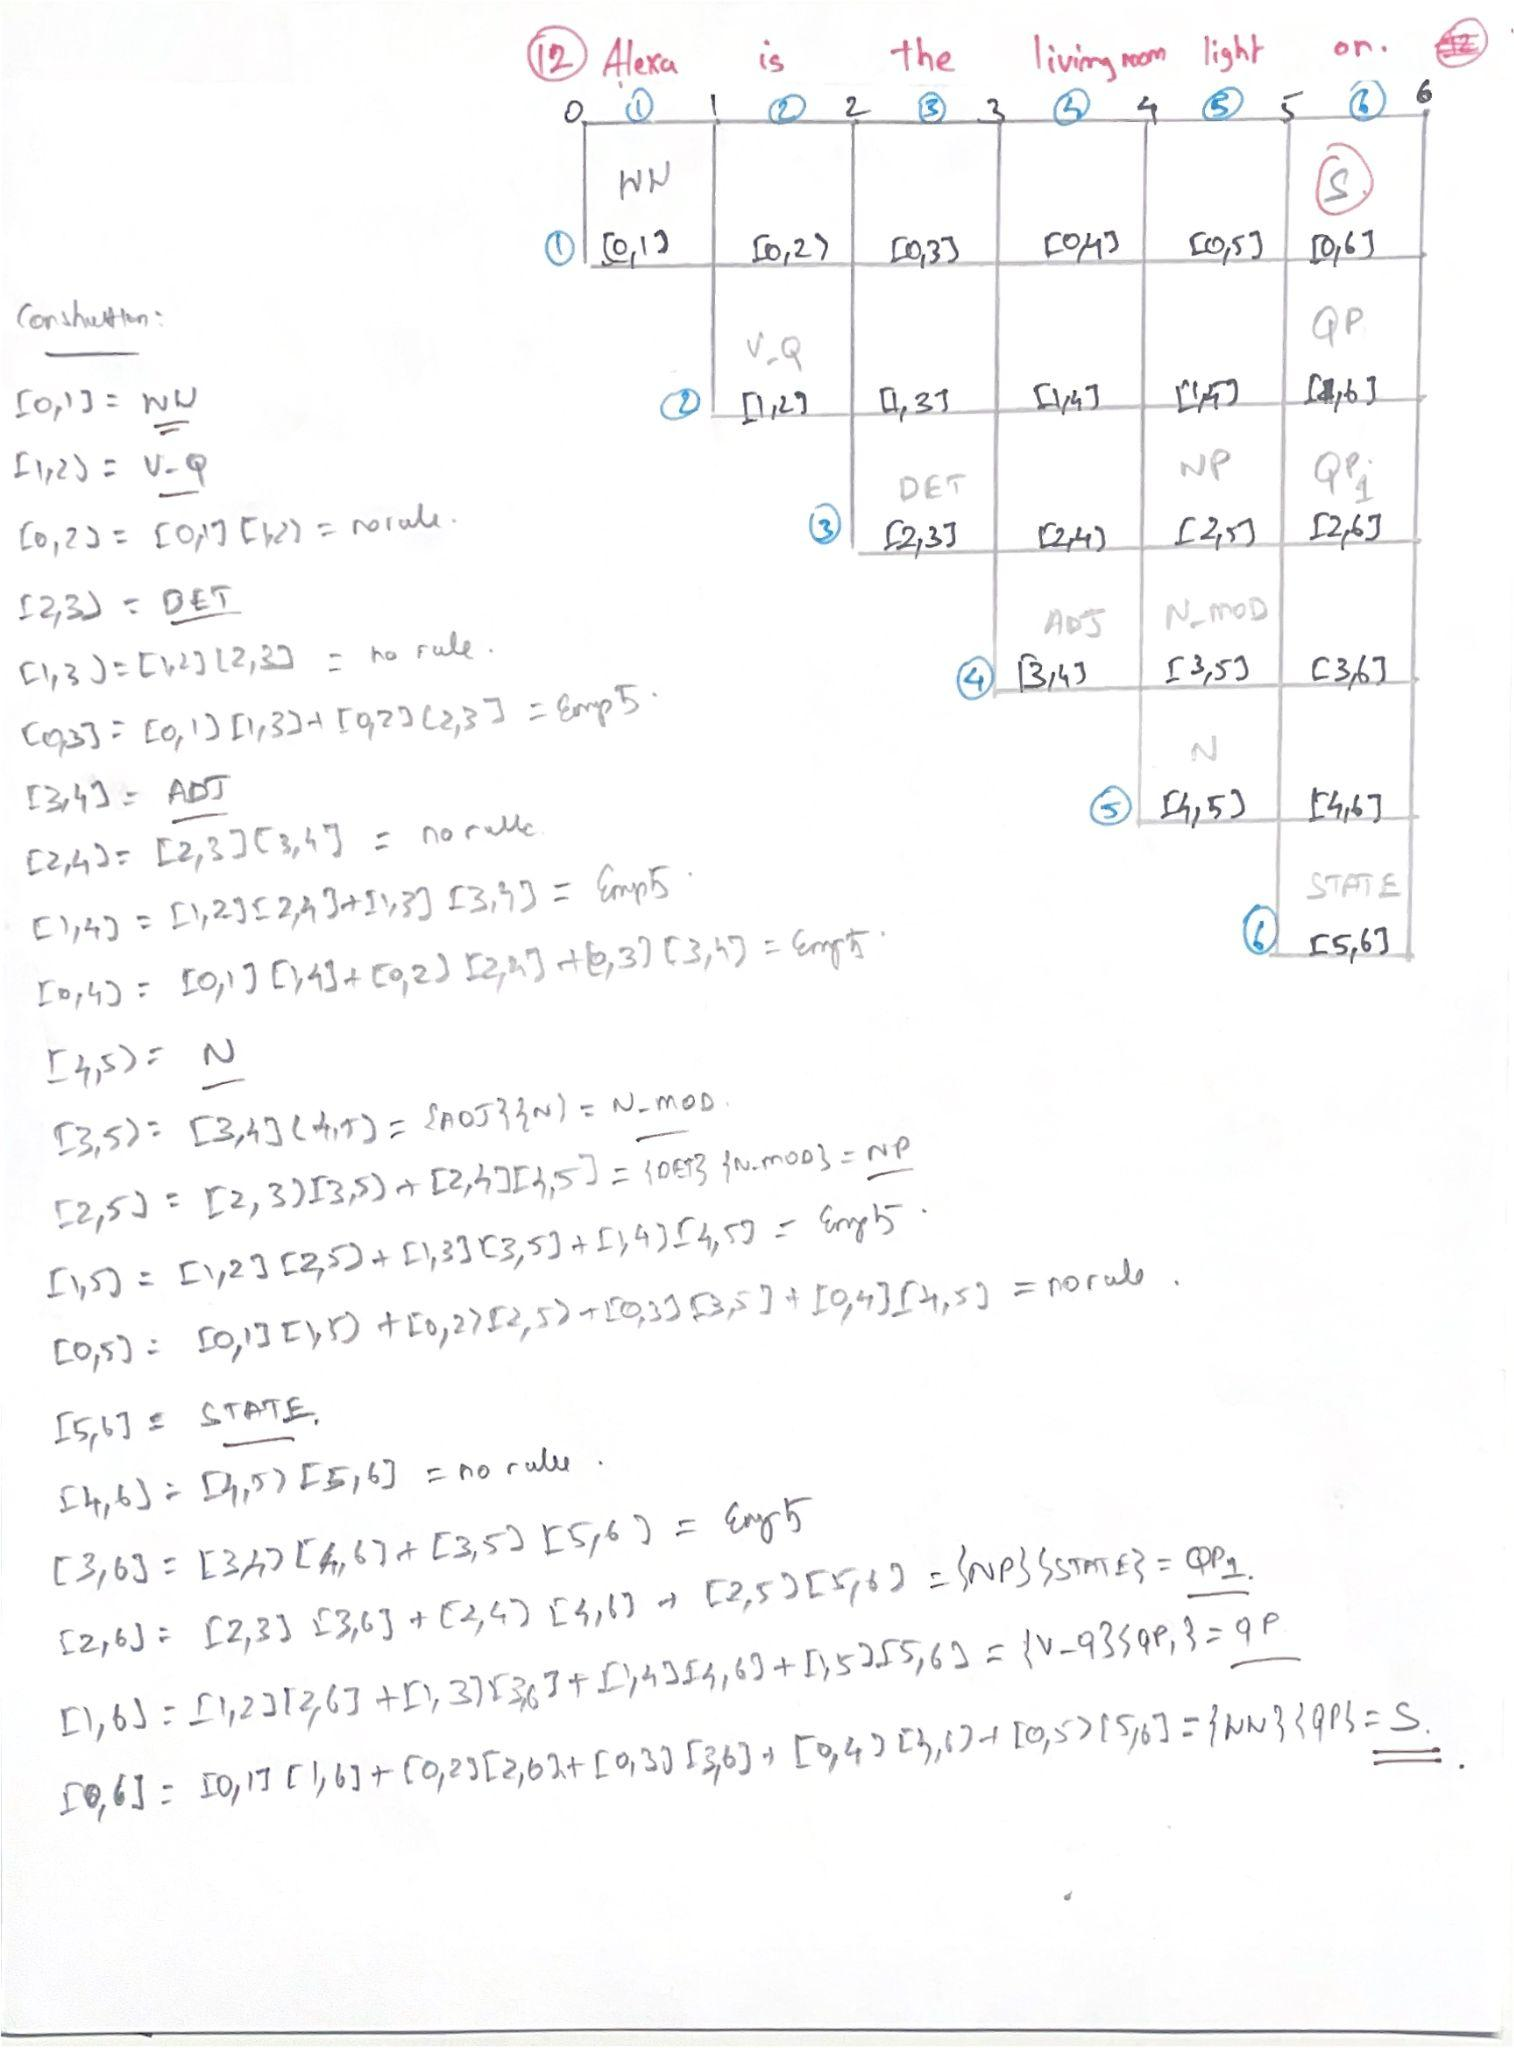 12 Alexa is the living room light on.
0 1 1 2 2 3 3 4 4 5 5 6 6
WN S
1 [0,1] [0,2] [0,3] [0,4] [0,5] [0,6]
V_Q QP
2 [1,2] [1,3] [1,4] [1,5] [1,6]
DET NP QP1
3 [2,3] [2,4] [2,5] [2,6]
ADJ N_MOD
4 [3,4] [3,5] [3,6]
N
5 [4,5] [4,6]
STATE
6 [5,6]
Construction:
[0,1] = WN
[1,2] = V-Q
[0,2] = [0,1] [1,2] = no rule.
[2,3] = DET
[1,3] = [1,2] [2,3] = no rule.
[0,3] = [0,1] [1,3] + [0,2] [2,3] = Empty.
[3,4] = ADJ
[2,4] = [2,3] [3,4] = no rule.
[1,4] = [1,2] [2,4] + [1,3] [3,4] = Empty.
[0,4] = [0,1] [1,4] + [0,2] [2,4] + [0,3] [3,4] = Empty.
[4,5] = N
[3,5] = [3,4] [4,5] = {ADJ} {N} = N-MOD.
[2,5] = [2,3] [3,5] + [2,4] [4,5] = {DET} {N-MOD} = NP
[1,5] = [1,2] [2,5] + [1,3] [3,5] + [1,4] [4,5] = Empty.
[0,5] = [0,1] [1,5] + [0,2] [2,5] + [0,3] [3,5] + [0,4] [4,5] = no rule.
[5,6] = STATE.
[4,6] = [4,5] [5,6] = no rule.
[3,6] = [3,4] [4,6] + [3,5] [5,6] = Empty
[2,6] = [2,3] [3,6] + [2,4] [4,6] + [2,5] [5,6] = {NP} {STATE} = QP1.
[1,6] = [1,2] [2,6] + [1,3] [3,6] + [1,4] [4,6] + [1,5] [5,6] = {V_Q} {QP1} = QP
[0,6] = [0,1] [1,6] + [0,2] [2,6] + [0,3] [3,6] + [0,4] [4,6] + [0,5] [5,6] = {NN} {QP} = S.